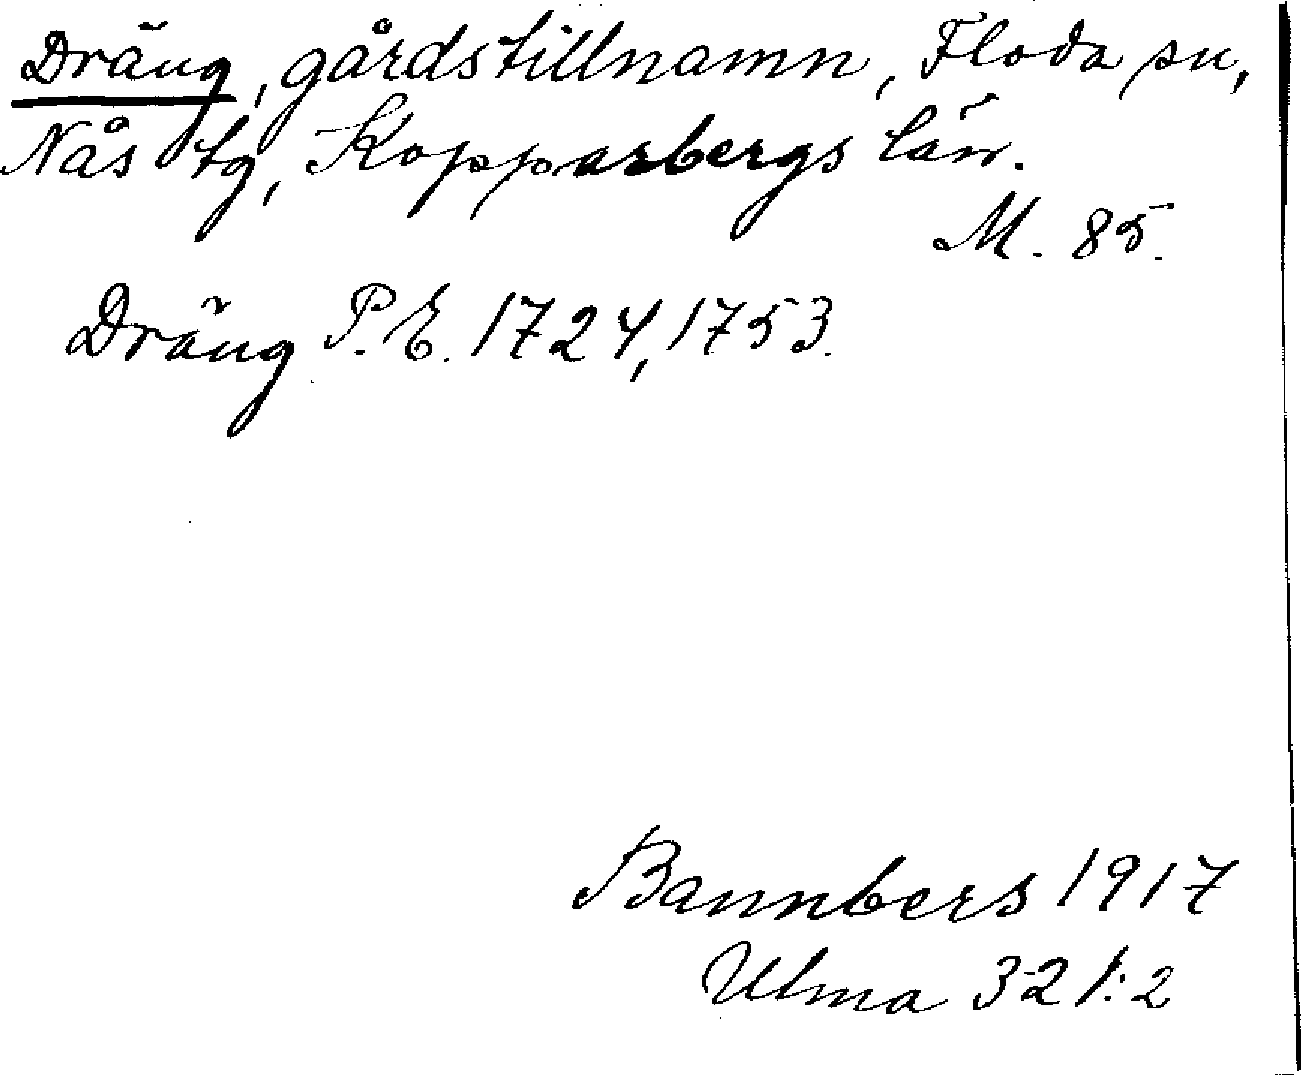 Dräng, gårdstillnamn, Floda sn,
Nås tg, Kopparbergs län.
M. 85.
Dräng P. E. 1724, 1753.
Bannbers 1917
Ulma 321:2